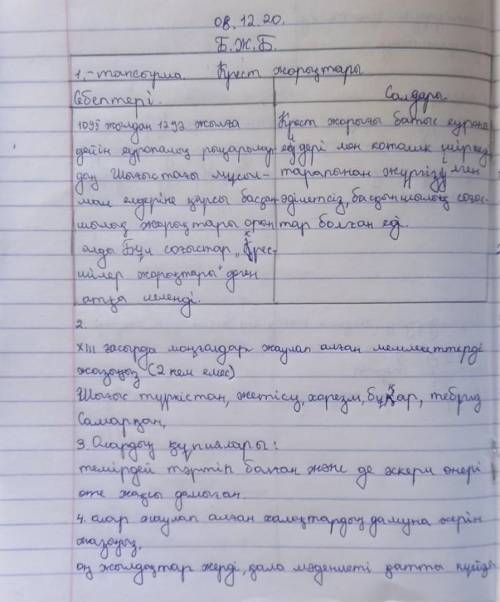 08.12.20.
Б.Ж.Б.
1,-тапсырма. Крест жорықтары
Себептері. Салдары
1095 жылдан 1293 жылға
дейін еуропалық рыцарьлар
дың Шығыстағы мұсыл-
ман елдеріне қарсы басқын
шылық жорықтары орын
алды Бұл соғыстар „Крес-
шілер жорықтары" деген
атқа иеленді.
Крест жорығы батыс еуропа
елдері мен католик шіркеуі
тарапынан жүргізуімен
әділетсіз, басқыншылық соғыс
тар болған еді.
2
XIII ғасырда моңғалдар жаулап алған мемлекеттерді
жазыңыз (2 кем емес)
Шығыс түркістан, жетісу, харезм, бұқар, тебриз
Самарқан,
3. Олардың құпиялары:
темірдей тәртіп болған және де әскери өнері
өте жақсы дамыған.
4. олар жаулап алған халықтардың дамуна әсерін
жазыңыз.
оң жылдықтар жерді, қала мәдениеті қатты күйзе